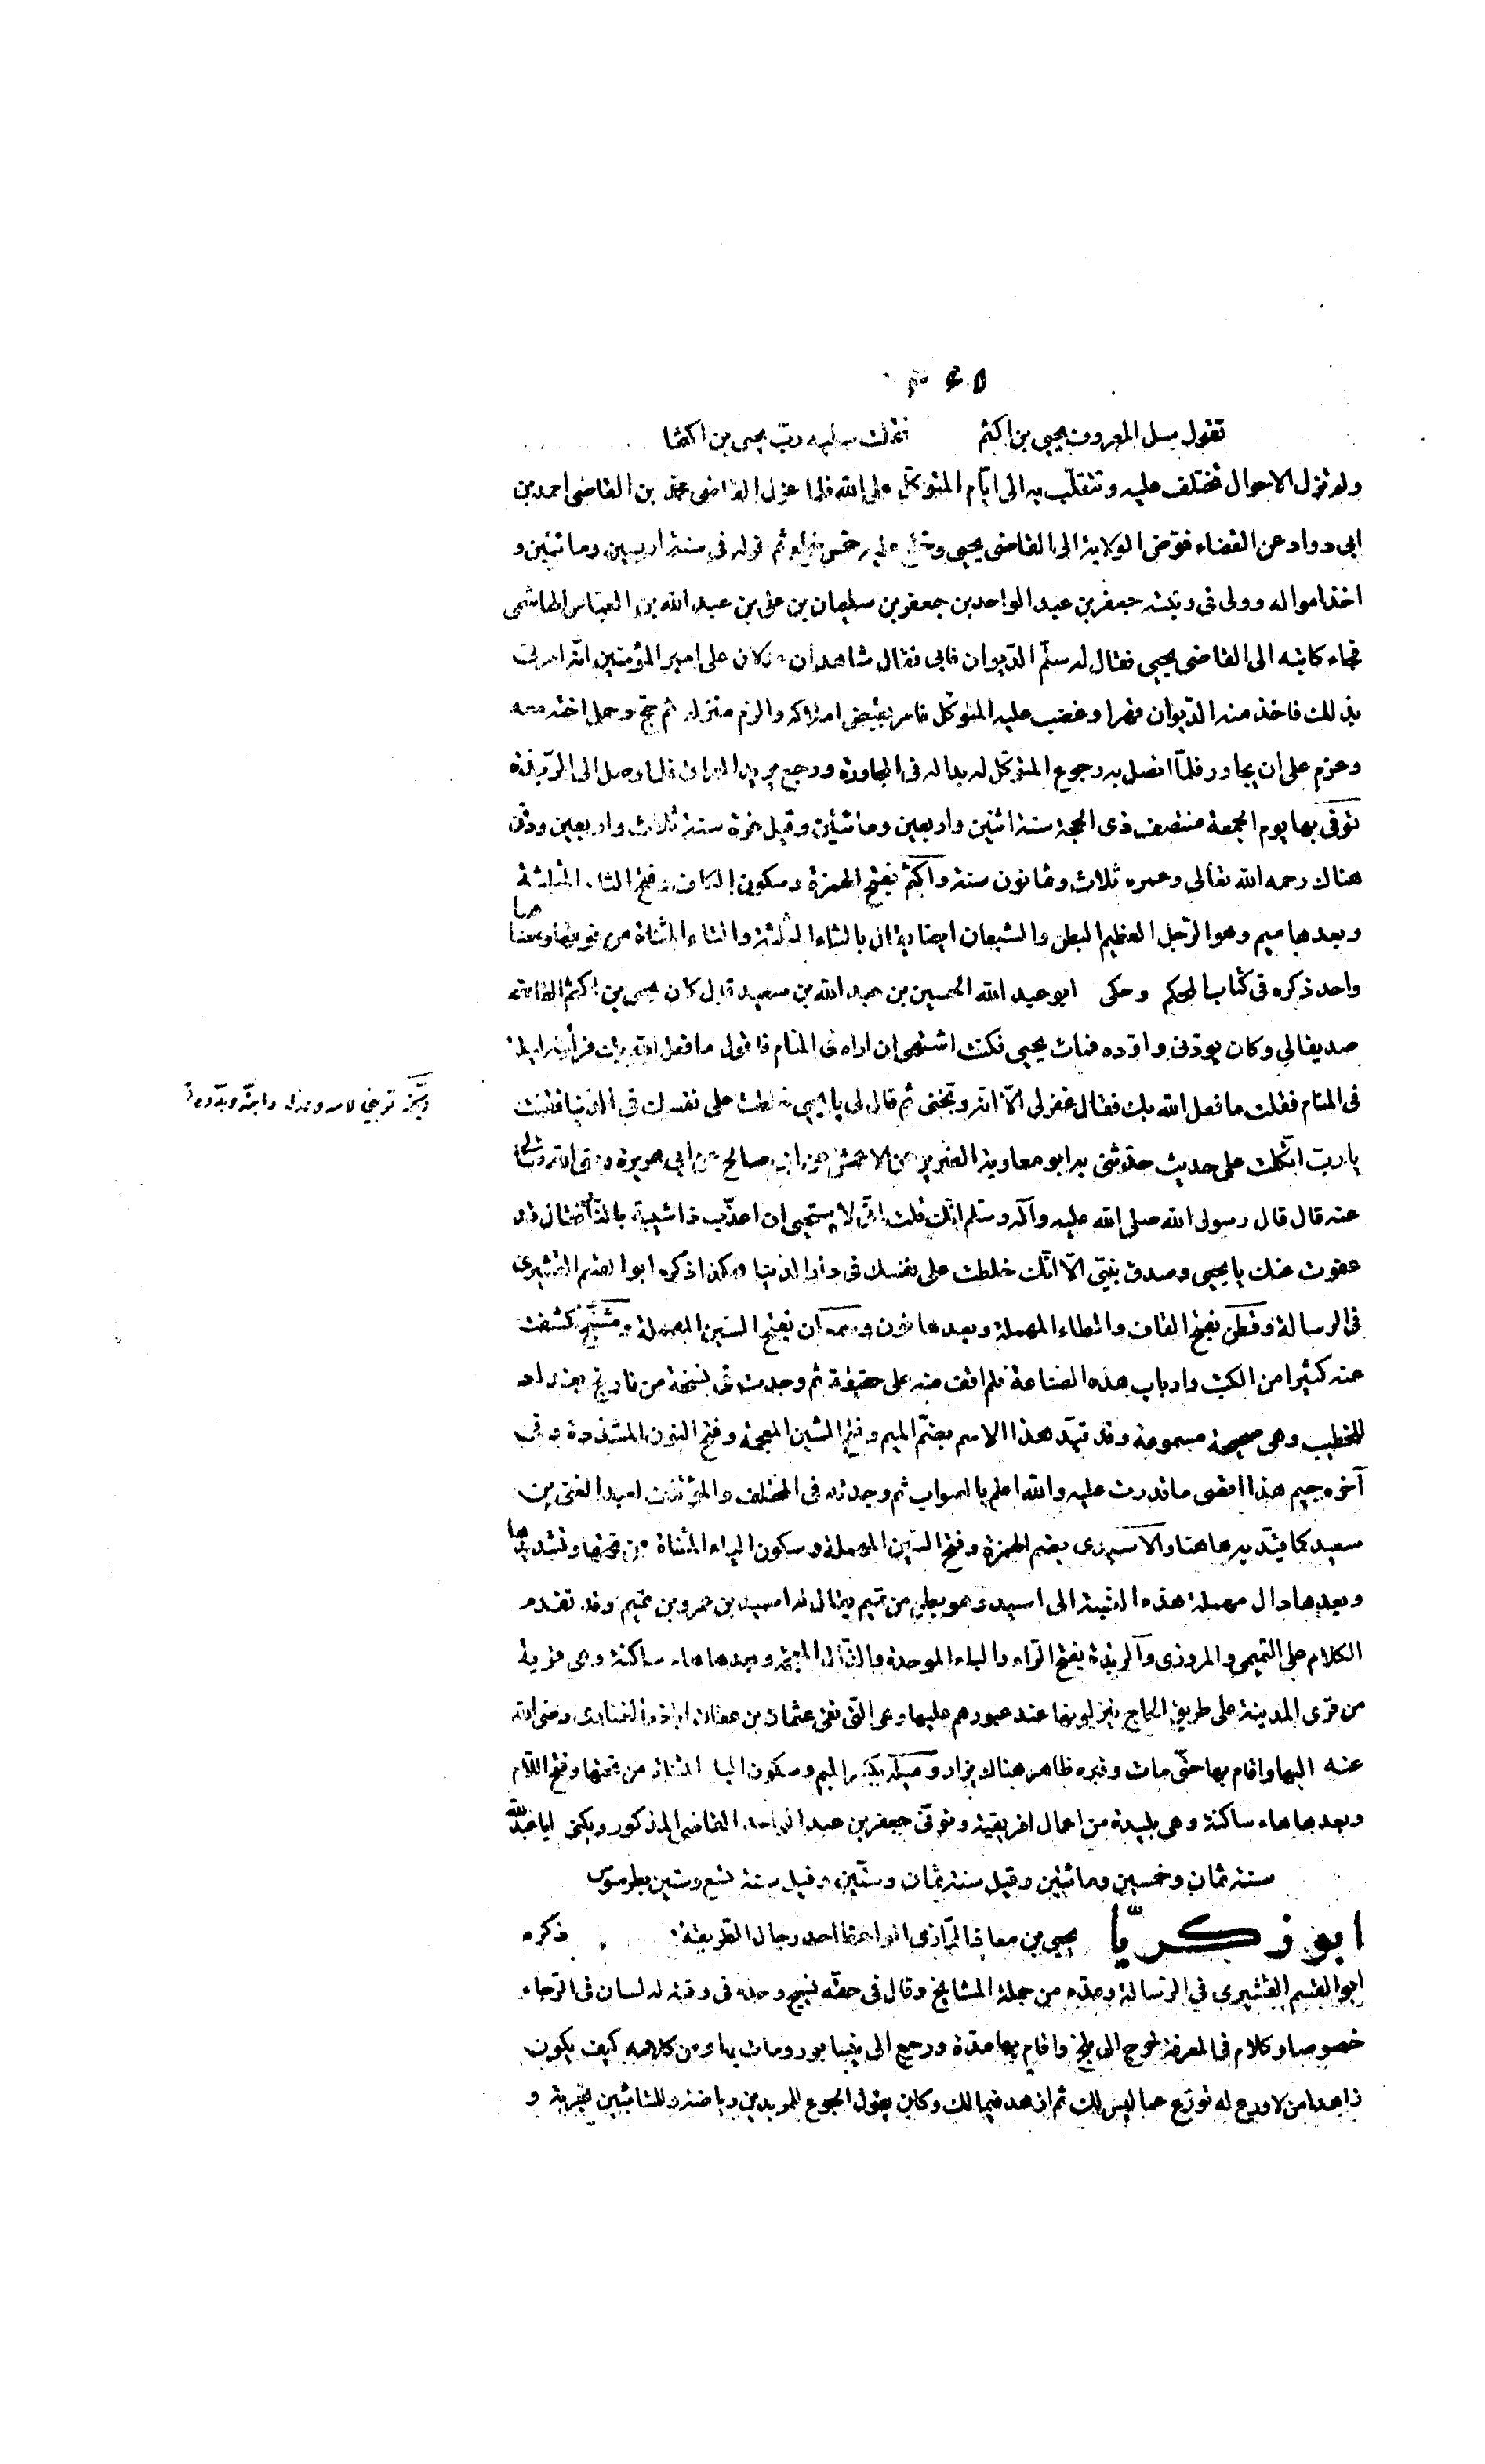 تقول سل المعروف يحيى بن اكثم فقلت سليه ربّ يحيى بن اكثما
ولم تزل الاحوال تختلف عليه وتتقلّب به الى ايّام المتوكّل على الله فلما عزل القاضى محمّد بن القاضى احمد بن
ابى دواد عن القضاء فوّض الولاية الى القاضى يحيى وخلع عليه خمس خلع ثم عزله فى سنة اربعين ومائتين و
اخذ امواله وولى فى رتبته جعفر بن عبد الواحد بن جعفر بن سليمان بن على بن عبد الله بن العباس الهاشمى
فجاء كاتبه الى القاضى يحيى فقال له سلّم الديوان فابى فقال شاهدان عدلان على امير المؤمنين انّه امرنى
بذلك فاخذ منه الديوان قهرا وغضب عليه المتوكّل فامر بقبض املاكه والزم منزله ثم حجّ وحمل اخته معه
وعزم على ان يجاور فلمّا اتصل به رجوع المتوكّل له بدا له فى المجاورة ورجع يريد العراق فلما وصل الى الربذة
توفّى بها يوم الجمعة منتصف ذى الحجة سنة اثنين واربعين ومائتين وقيل غرة سنة ثلاث واربعين ودفن
هناك رحمه الله تعالى وعمره ثلاث وثمانون سنة واكثم بفتح الهمزة وسكون الكاف وفتح الثاء المثلثة
وبعدها ميم وهو الرّجل العظيم البطن والشبعان ايضا يقال بالثاء المثلثة والتاء المثناة من فوقها ومعناهما
واحد ذكره فى كتاب المحكم وحكى ابو عبد الله الحسين بن عبد الله بن سعيد قال كان يحيى بن اكثم القاضى
صديقا لى وكان يودّنى واودّه فمات يحيى فكنت اشتهى ان اراه فى المنام فاقول ما فعل الله بك فرأيته ليلة
فى المنام فقلت ما فعل الله بك فقال غفر لى الّا انّه وبّخنى ثم قال لى يا يحيى خلطت على نفسك فى الدنيا فقلت
يا ربّ اتكلت على حديث حدّثنى به ابو معاوية الضرير عن الاعمش عن ابى صالح عن ابى هريرة رضى الله تعالى
عنه قال قال رسول الله صلى الله عليه وآله وسلم انّك قلت انى لا يستحيى ان اعذّب ذا شيبة بالنّار فقال قد
عفوت عنك يا يحيى وصدق نبيّى الّا انّك خلطت على نفسك فى دار الدنيا هكذا ذكره ابو القسم القشيرى
فى الرسالة وقطن بفتح القاف والطاء المهملة وبعدها نون وسمعان بفتح السين المهملة ومشنّج كشفت
عنه كثيرا من الكتب وارباب هذه الصناعة فلم اقف منه على حقيقة ثم وجدت فى نسخة من تاريخ بغداد
للخطيب وهى صحيحة مسموعة وقد قيّد هذا الاسم بضمّ الميم وفتح الشين المعجمة وفتح النون المشددة وفى
آخره جيم هذا اقصى ما قدرت عليه والله اعلم بالصواب ثم وجدته فى المختلف والمؤتلف لعبد الغنى بن
سعيد كما قيّد به هاهنا والاسيدى بضم الهمزة وفتح السّين المهملة وسكون الياء المثناة من تحتها وتشديدها
وبعدها دال مهملة هذه النسبة الى اسيد وهو بطن من تميم يقال له اسيد بن عمرو بن تميم وقد تقدم
الكلام على التميمى والمروزى والربذة بفتح الرّاء والباء الموحدة والذّال المعجمة وبعدها هاء ساكنة وهى قرية
من قرى المدينة على طريق الحاج ينزلونها عند عبورهم عليها وهى التى نفى عثمان بن عفان ابا ذر الغفارى رضى الله
عنه اليها واقام بها حتّى مات وقبره ظاهر هناك يزار وميلة بكسر الميم وسكون الياء المثناة من تحتها وفتح اللّام
وبعدها هاء ساكنة وهى بليدة من اعمال افريقية وتوفّى جعفر بن عبد الواحد القاضى المذكور ويكنى ابا عبد اللّه
سنة ثمان وخمسين ومائتين وقيل سنة ثمان وستّين وقيل سنة تسع وستين بطرسوس
ابو زكريّا يحيى بن معاذ الرّازى الواعظ احد رجال الطريقة ذكره
ابو القسم القشيرى فى الرّسالة وعدّه من جملة المشايخ وقال فى حقّه نسيج وحده فى وقته له لسان فى الرّجاء
خصوصا وكلام فى المعرفة خرج الى بلخ واقام بها مدّة ورجع الى نيسابور ومات بها ومن كلامه كيف يكون
زاهدا من لا ورع له تورّع عما ليس لك ثم ازهد فيما لك وكان يقول الجوع للمريدين رياضة وللتائبين تجربة و